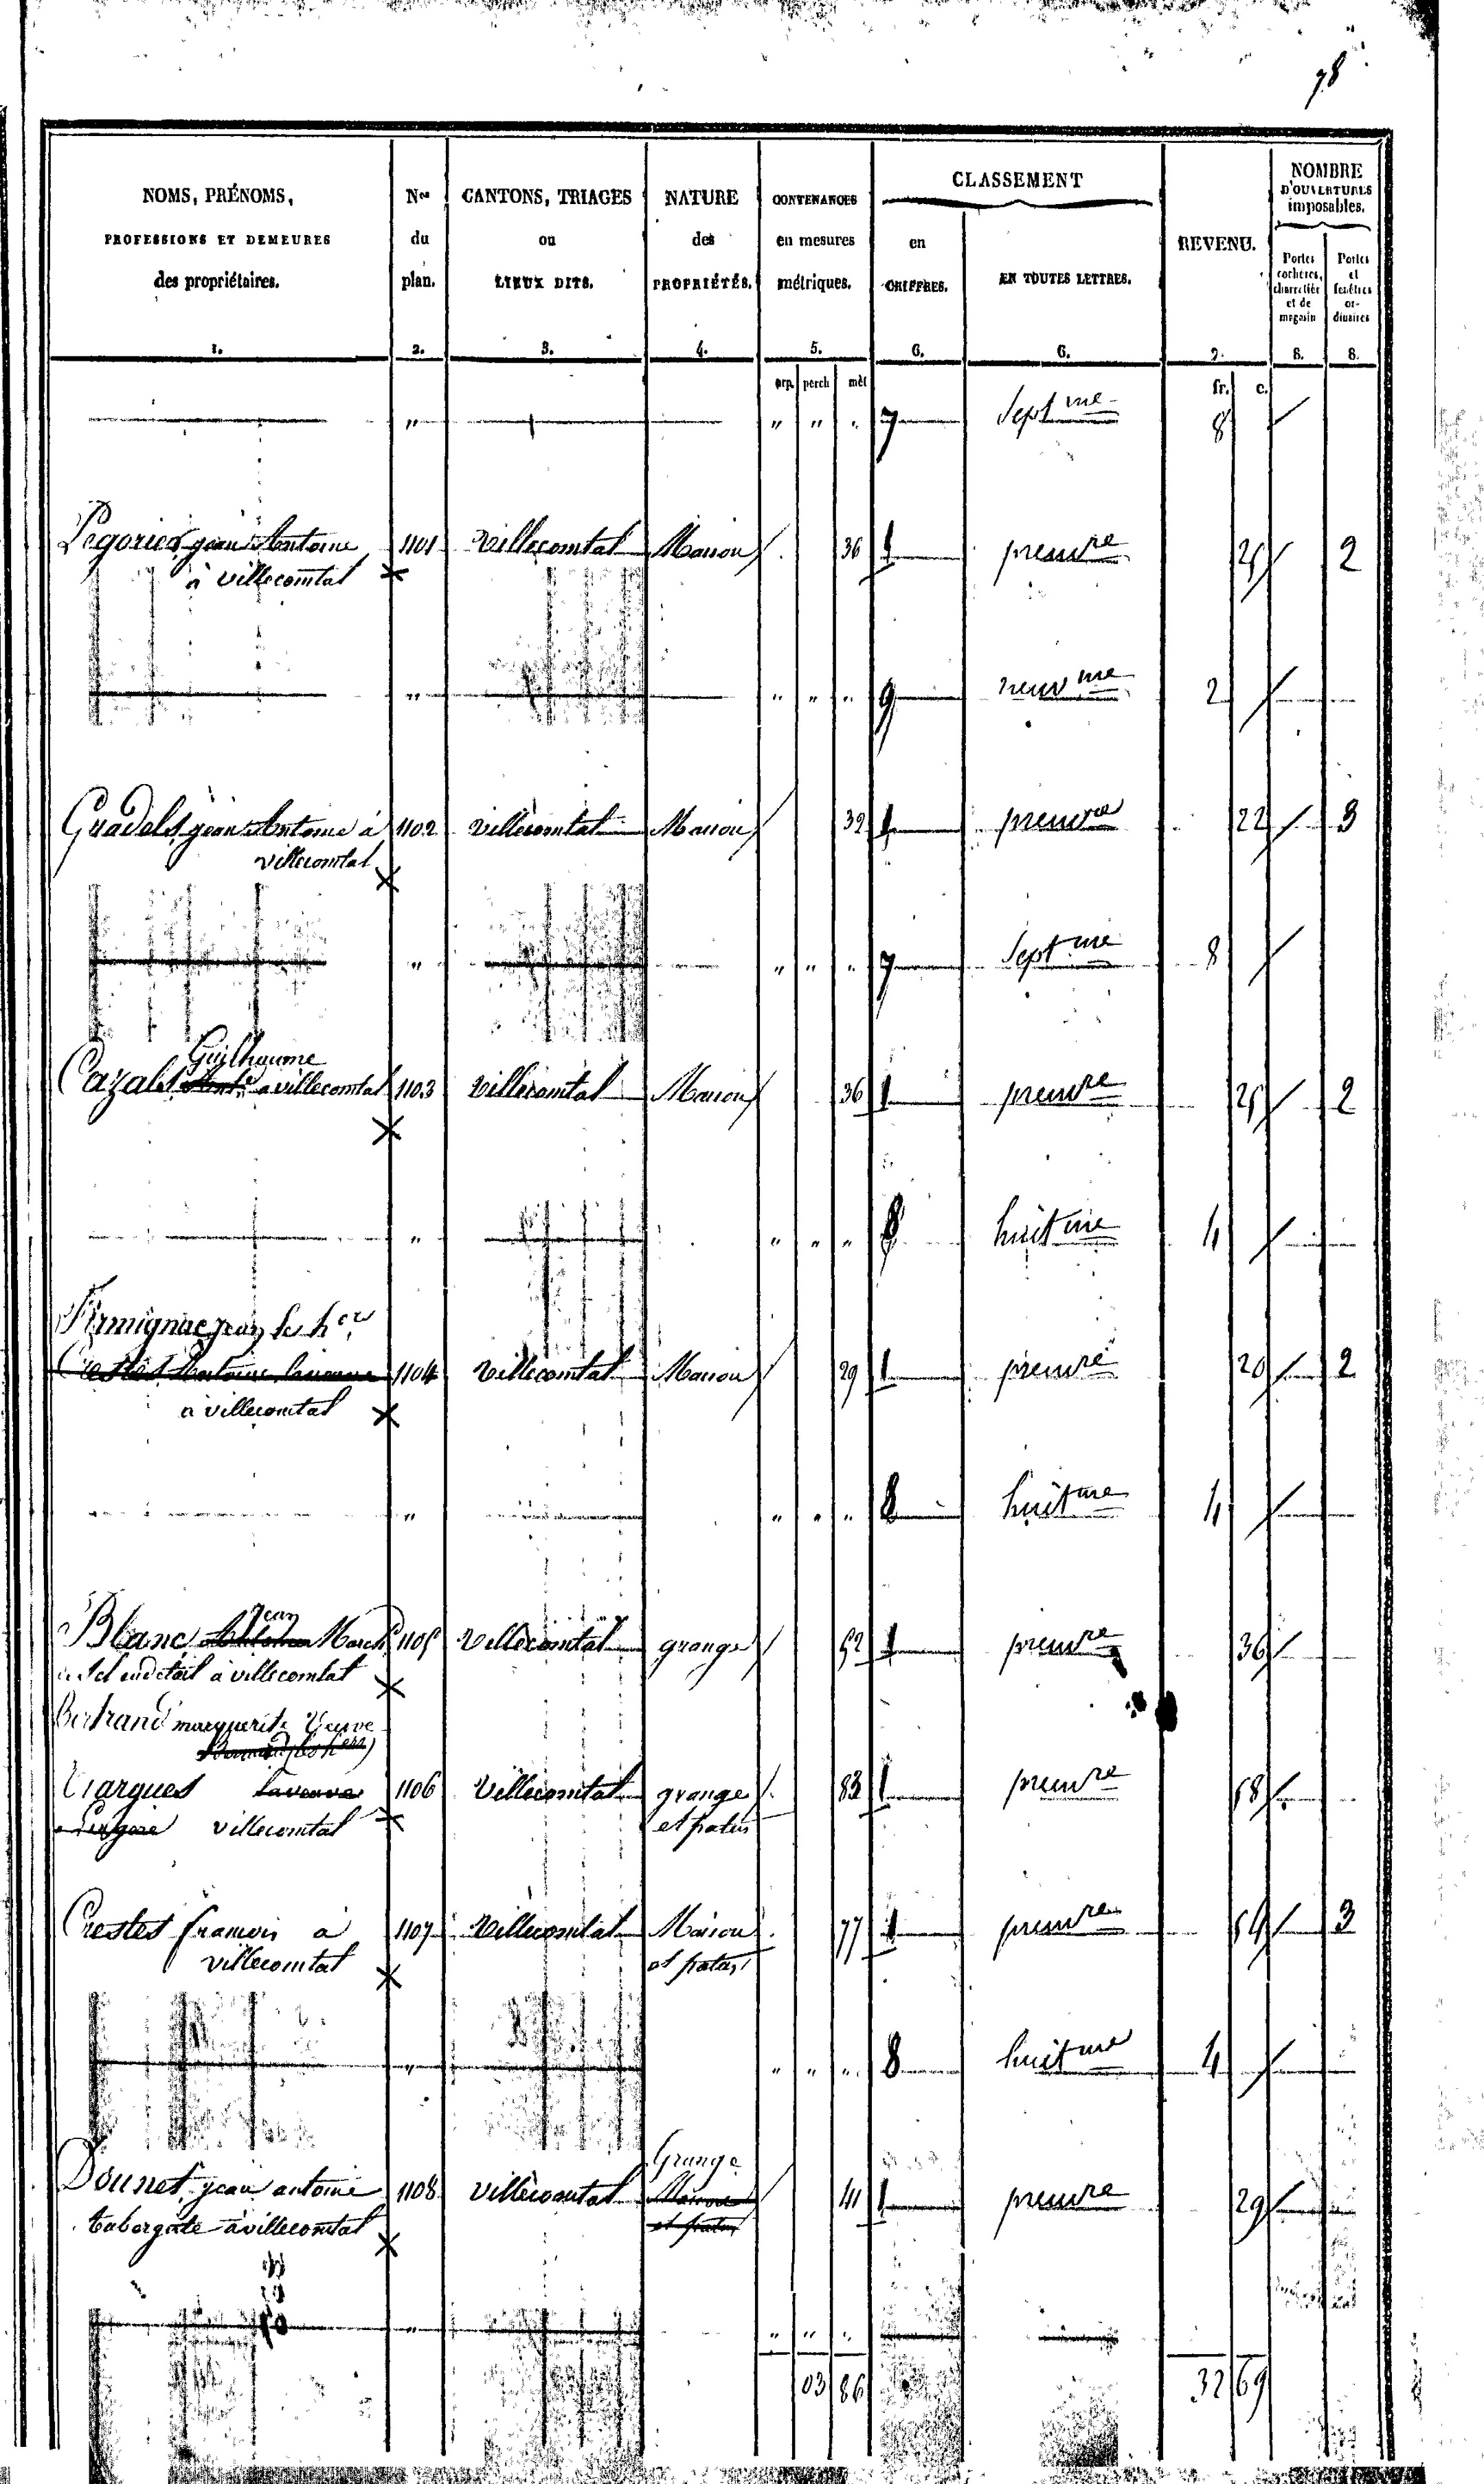 78
NOMS, PRÉNOMS, PROFESSIONS ET DEMEURES des propriétaires. 1.
Nos du plan. 2.
CANTONS, TRIAGES ou LIEUX DITS. 3.
NATURE des PROPRIÉTÉS. 4.
CONTENANCES en mesures métriques. 5.
CLASSEMENT
en CHIFFRES. 6.
EN TOUTES LETTRES. 6.
REVENU. 7.
NOMBRE D'OUVERTURES imposables.
Portes cochères, charretière et de magasin 8.
Portes et fenêtres ordinaires 8.
arp. perch mèt fr. c.
" " " " 7 Septme 8
Jean Antoine 1101 Villecomtal Maison 36 1 premre 25 2
à villecomtal
" " " " 9 neuvme 2
Jean Antoine à 1102 villecomtal Maison 32 1 premre 22 3
villecomtal
" " " " 7 Septme 8
Guilhaume
Cazals a villecomtal 1103 Villecomtal Maison 36 1 premre 25 2
" " " " 8 huitme 4
Firmignac jean
1104 Villecomtal Maison 29 1 premre 20 2
a villecomtal
" " " " 8 huitme 4
Jean
Blanc March 1105 Villecomtal grange 52 1 premre 36
de Sel en détail à villecomtal
Bertrand marguerite Veuve
1106 Villecomtal grange 83 1 premre 58
villecomtal et patus
Crestes francois à 1107 Villecomtal Maison 77 1 premre 54 3
villecomtal et patus
" " " " 8 huitme 4
Grange
Dounet jean antoine 1108 villecomtal Maison 41 1 premre 29
à villecomtal et patus
" " " "
03 86 32 69